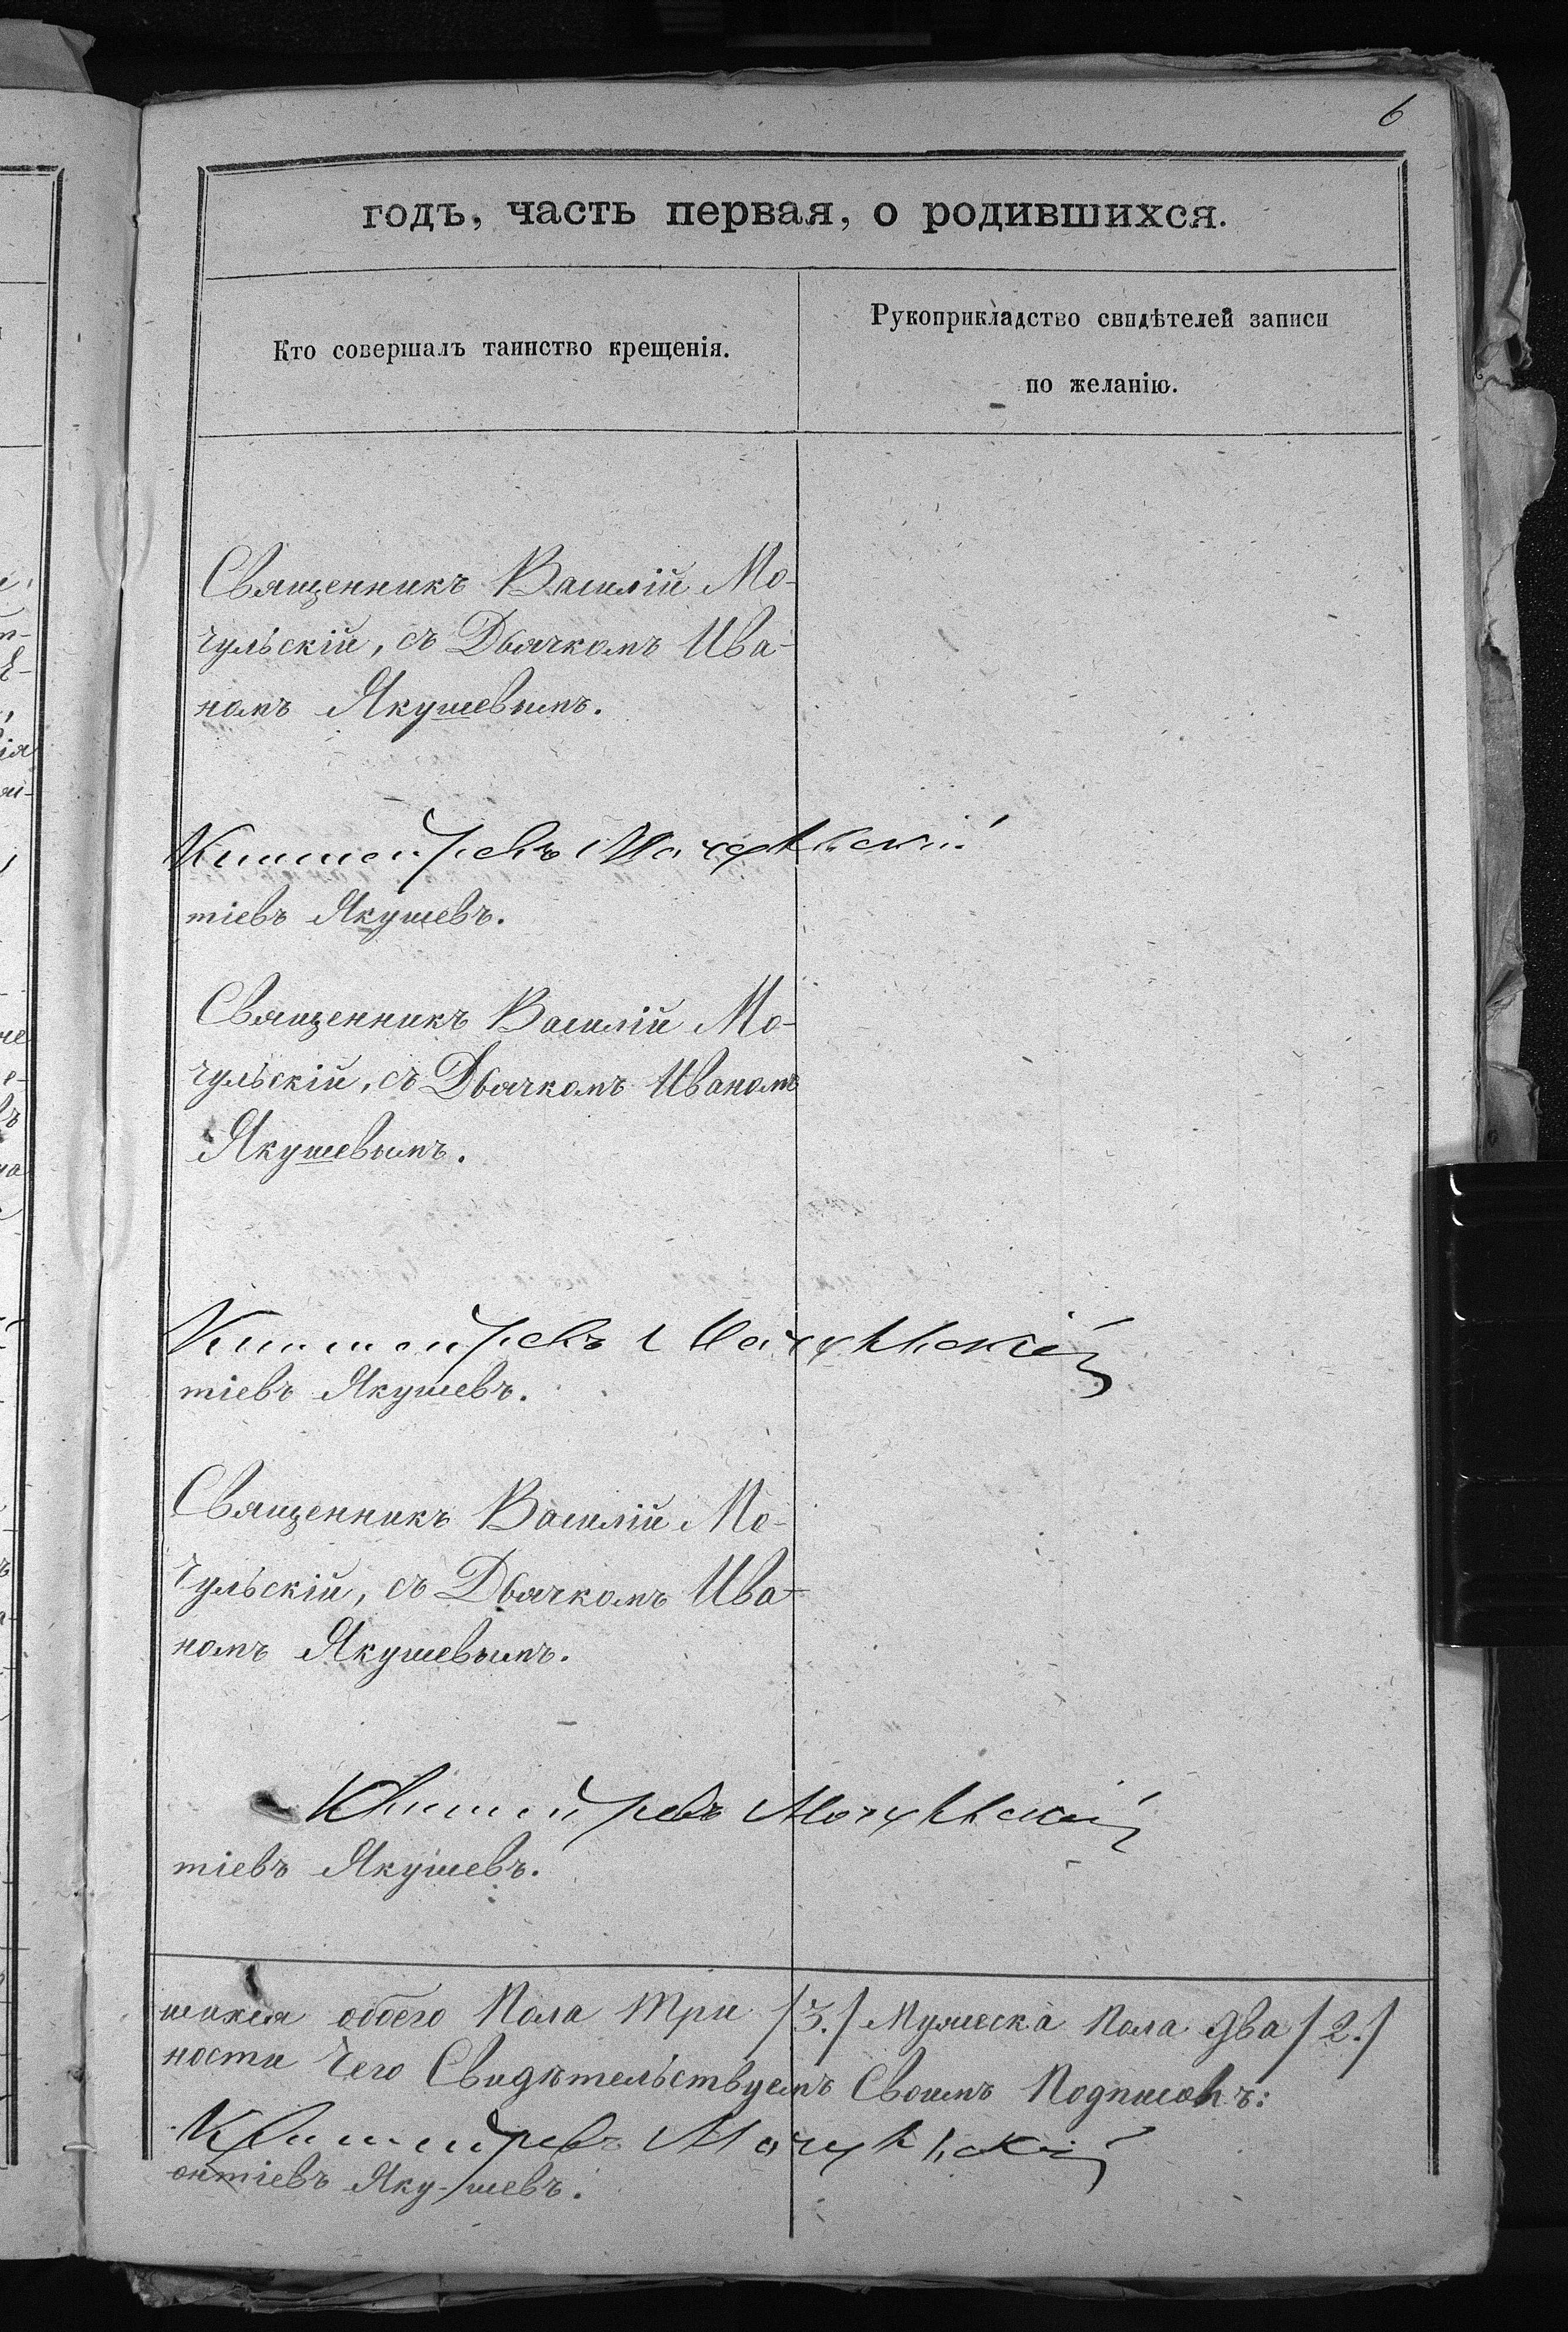 6
годъ, часть первая, о родившихся.
Кто совершалъ таинство крещенія.
Рукоприкладство свидѣтелей записи
по желанію.
Священникъ Василій Мо-
чульскій, съ Дьячкомъ Ива-
номъ Якушевымъ.
Мочульскій
тіевъ Якушевъ.
Священникъ Василій Мо-
чульскій, съ Дьячкомъ Иваномъ
Якушевымъ.
Мочульскій
тіевъ Якушевъ.
Священникъ Василій Мо-
чульскій, съ Дьячкомъ Ива-
номъ Якушевымъ.
Мочульскій
тіевъ Якушевъ.
шихся обоего Пола Три /3./ Мужеска Пола Два /2./
ности Чего Свидѣтельствуемъ Своимъ Подписомъ:
Мочульскій
онтіевъ Яку-шевъ.